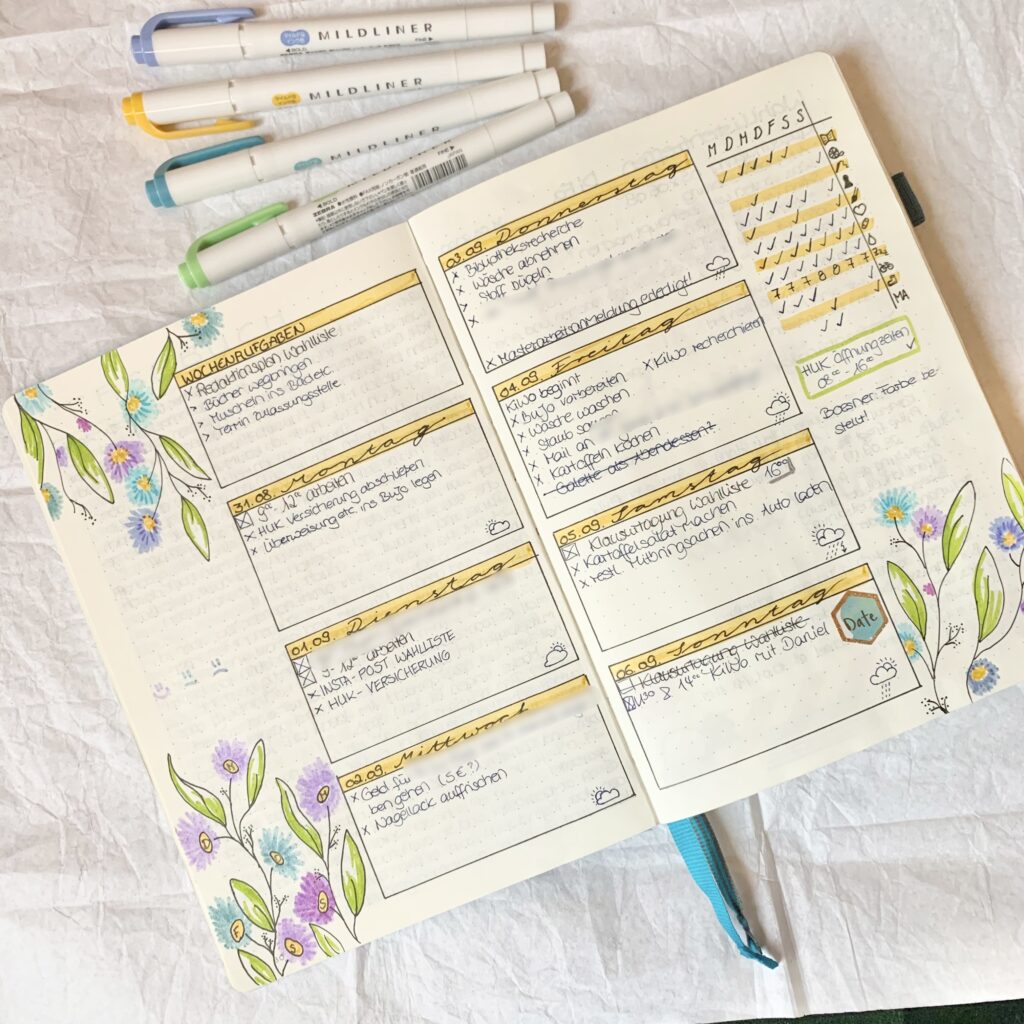 MILDLINER
MILDLINER
MILDLINER
BOLD
FINE
WOCHENAUFGABEN
x Redaktionsplan Wahlliste
> Bücher wegbringen
> Muscheln ins Bad etc.
> Termin Zulassungsstelle
31.08. Montag
9 - 12 arbeiten
x HUK Versicherung abschließen
x Überweisung etc. ins BuJo legen
01.09. Dienstag
9-12 arbeiten
x INSTA-POST WAHLLISTE
x HUK-VERSICHERUNG
02.09. Mittwoch
x Geld für
ben gehen (5€?)
x Nagellack auffrischen
M
D
M
F
S
S
03.09. Donnerstag
x Bibliotheksrecherche
x Wäsche abnehmen
> Stoff bügeln
x
x Masterarbeitsanmeldung erledigt!
04.09. Freitag
KiWo beginnt
x KiWo recherchieren
x BuJo vorbereiten
x Wäsche waschen
x Staub
x Mail an
x Kartoffeln kochen
Galette als Abendessen?
05.09. Samstag
Klausurtagung Wahlliste 16:00
x Kartoffelsalat machen
x restl. Mitbringsachen ins Auto laden
06.09. Sonntag
Date
Klausurtagung Wahlliste
1130 & 1400 KiWo mit Daniel
M D M D F S S
7 7 7 8 0 8 7 7
MA
HUK Öffnungszeiten
08:00 - 16:00
Boesner: Farbe be-
stellt!